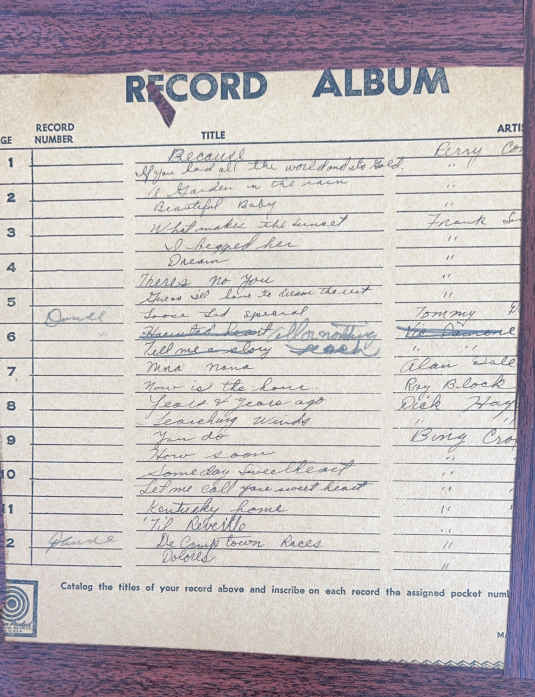 RECORD ALBUM
GE RECORD NUMBER TITLE ARTI
1 Because Perry Co
If you had all the world and its Gold. " "
2 A Garden in the rain " "
Beautiful Baby " "
3 What makes the sunset Frank S
I begged her "
4 Dream "
There's no You "
5 Guess I'll have to dream the rest "
Loose Lid special Tommy D
6 Haunted heart all or nothing Vic Damone
Tell me a story " "
7 Mna nana Alan Dale
Now is the hour Ray Block
8 Years & Years ago Dick Hay
Searching Winds " "
9 You do Bing Cro
How soon "
10 Someday Sweetheart "
Let me call you sweet heart "
11 Kentucky home "
'Til Reveille "
2 De Camp town Races "
Dolores "
Catalog the titles of your record above and inscribe on each record the assigned pocket num
MA